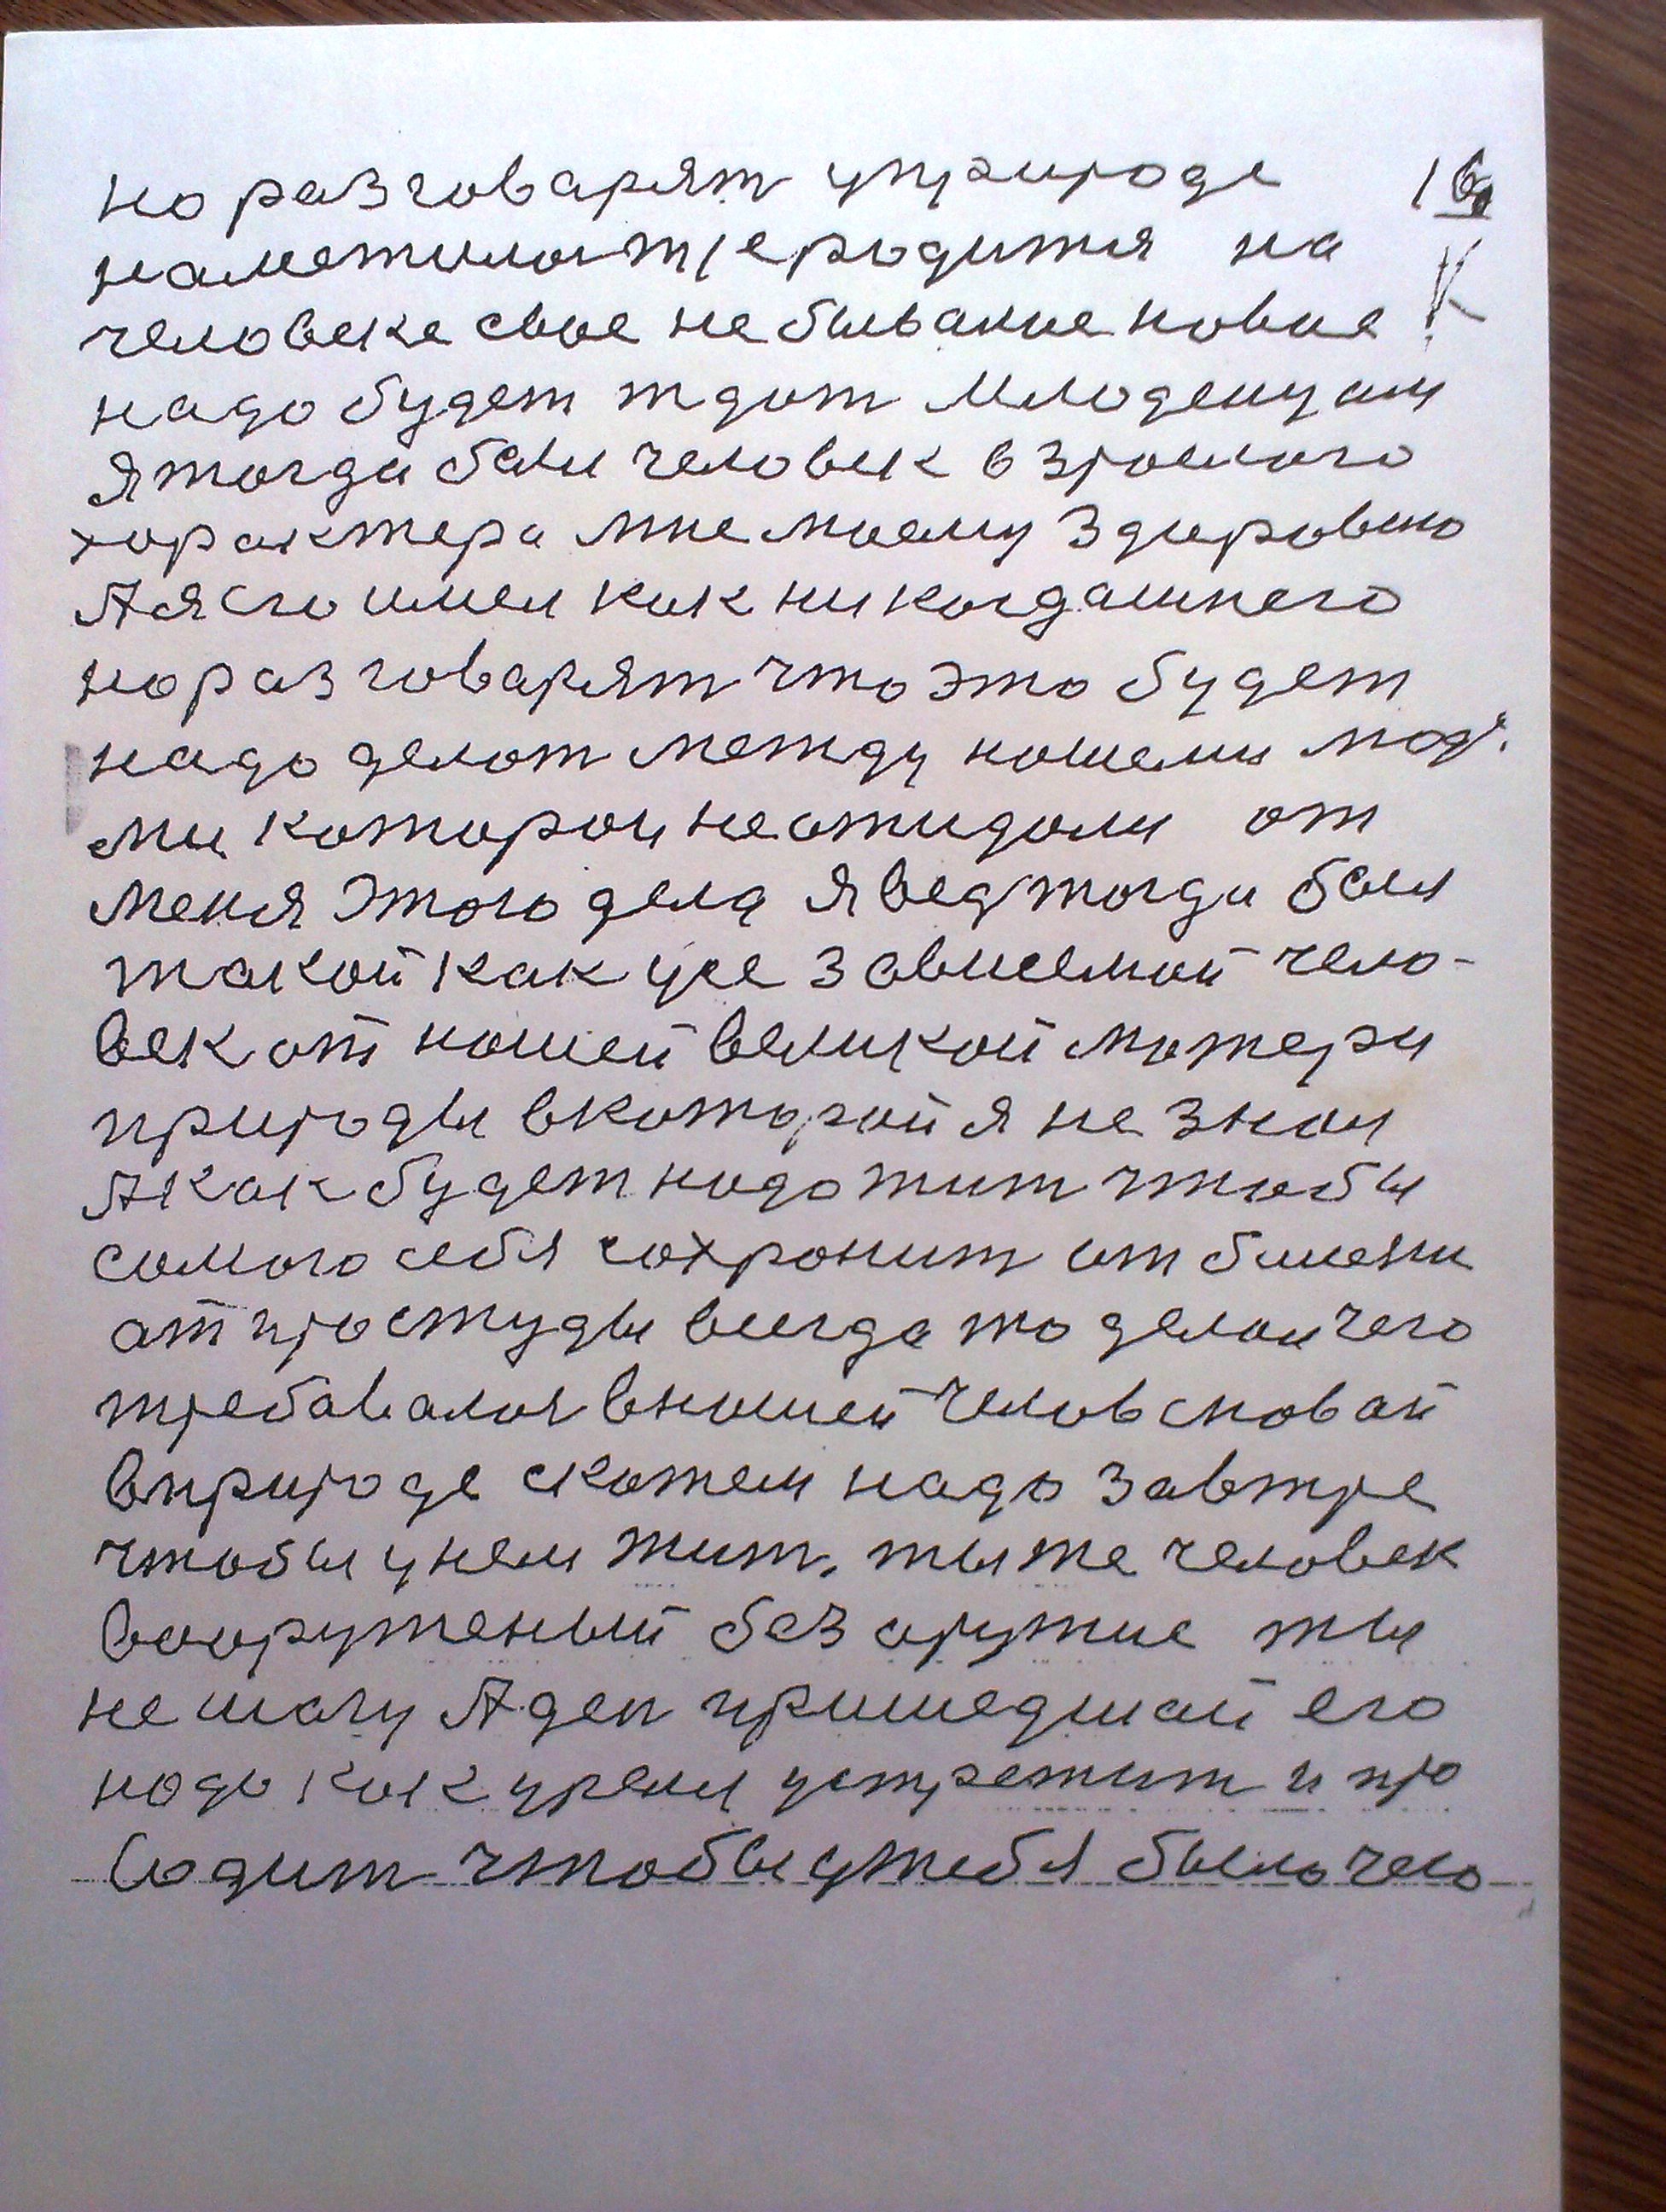 но раз говарят уприроде 16
наметилост/е родится на К
человеке свое не бывалие новие
надо будет ждат Младенцам
Я тогда бали человек взрослого
характера мне моему Здировию
А я его имел как ни когдашнего
но раз говарят что это будет
надо делат между нашеми люд
ми которои не ожидали от
меня этого дела Я вед тогда были
такой как уже зависемой чело-
век от нашей великой матери
природы вкоторой я не знаи
А как будет надо жит чтобы
самого себя сохронит от
ат простуды всегда то делаи чего
требавалоя внашей человековай
вприроде скажем надо завтре
чтобы унем жит. ты же человек
вооруженый без оружие ты
не шагу А ден пришедшай его
надо как устретит и про
водит чтобы утебя было чего